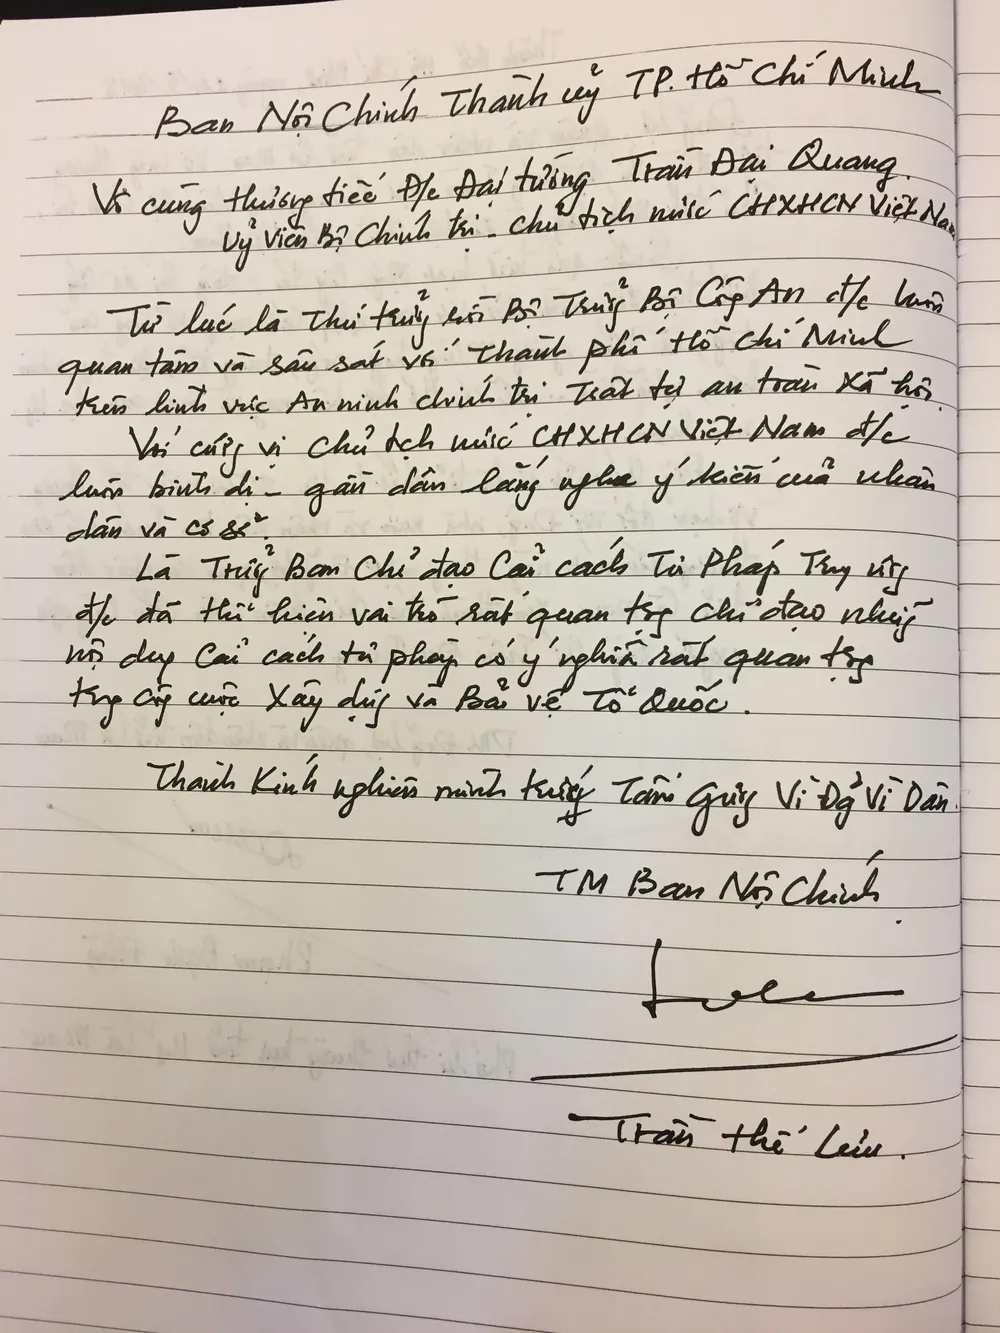 Ban Nội Chính Thành uỷ TP. Hồ Chí Minh
Vô cùng thương tiếc Đ/c Đại tướng Trần Đại Quang.
Uỷ viên Bộ Chính trị - Chủ tịch nước CHXHCN Việt Nam
Từ lúc là Thứ trưởng rồi Bộ Trưởng Bộ Công An đ/c luôn
quan tâm và sâu sát với Thành phố Hồ Chí Minh
trên lĩnh vực An ninh chính trị Trật tự an toàn xã hội.
Với cương vị Chủ tịch nước CHXHCN Việt Nam đ/c
luôn bình dị - gần dân lắng nghe ý kiến của nhân
dân và cơ sở.
Là Trưởng Ban Chỉ đạo Cải cách Tư Pháp Trung ương
đ/c đã thể hiện vai trò rất quan trọng chỉ đạo những
nội dung Cải cách tư pháp có ý nghĩa rất quan trọng
trong công cuộc Xây dựng và Bảo vệ Tổ Quốc.
Thành Kính nghiêng mình trước Tấm Gương Vì Đảng Vì Dân.
TM Ban Nội Chính
Trần Thế Lưu.